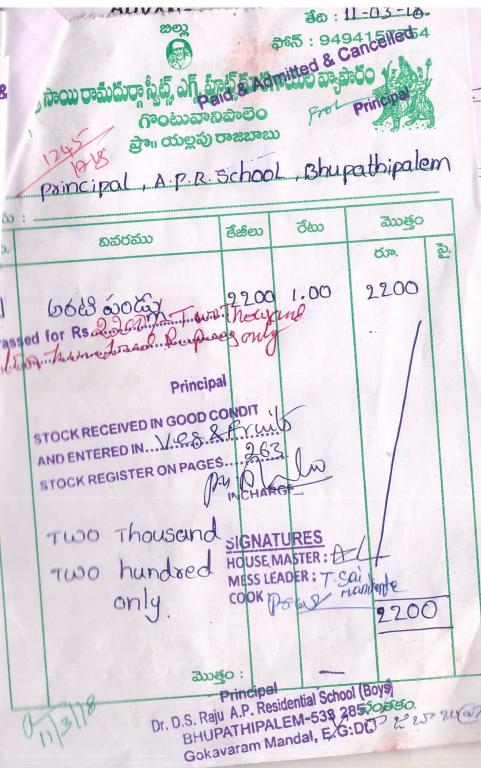 బిల్లు
తేది : 11-03-18
ఫోన్ :
Paid & Admitted & Cancelled
Principal
సాయి రామదుర్గా స్వీట్స్
వ్యాపారం
గొంటువానిపాలెం
ప్రొ॥ యల్లపు రాజబాబు
Principal, A.P.R. School, Bhupathipalem
వివరము కేజీలు రేటు మొత్తం
రూ. పై.
అరటి పండ్లు 2200 1.00 2200
Passed for Rs. 2200/- Two Thousand
Two Hundred Rupees only
Principal
STOCK RECEIVED IN GOOD CONDIT
AND ENTERED IN Veg & Fruits
STOCK REGISTER ON PAGES 263
INCHARGE
TWO Thousand
TWO hundred
only.
SIGNATURES
HOUSE MASTER :
MESS LEADER : T. Sai
COOK
2200
మొత్తం :
Principal
Dr. D.S. Raju A.P. Residential School (Boys)
BHUPATHIPALEM-533 285
సంతకం.
Gokavaram Mandal, E.G.Dt
11/3/18